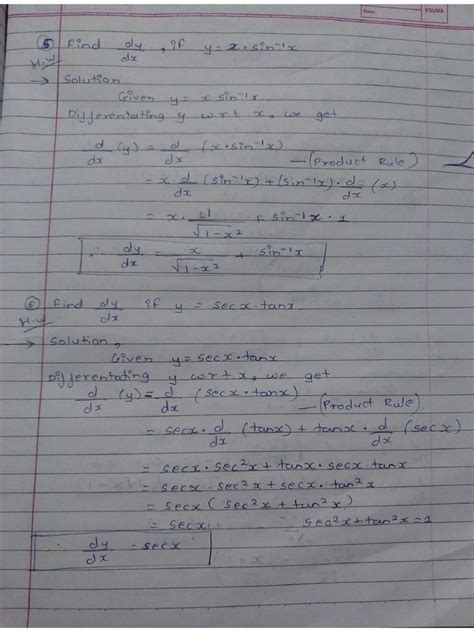 Date: YOUVA
⑤ Find dy/dx, if y = x·sin⁻¹x
H.W
→ Solution
Given y = x sin⁻¹x.
Differentating y w.r.t x, we get
d/dx (y) = d/dx (x·sin⁻¹x) —(Product Rule)
= x·d/dx (sin⁻¹x) + (sin⁻¹x)·d/dx (x)
= x·1/√1-x² + sin⁻¹x·1
∴ dy/dx = x/√1-x² + sin⁻¹x
⑥ Find dy/dx if y = secx·tanx.
H.W
→ Solution,
Given y = secx·tanx
Differentating y w.r.t x, we get
d/dx (y) = d/dx (secx·tanx) —(Product Rule).
= secx·d/dx (tanx) + tanx·d/dx (secx)
= secx·sec²x + tanx·secx tanx
= secx·sec²x + secx·tan²x
= secx (sec²x + tan²x)
= secx ∵ sec²x + tan²x = 1
∴ dy/dx = secx